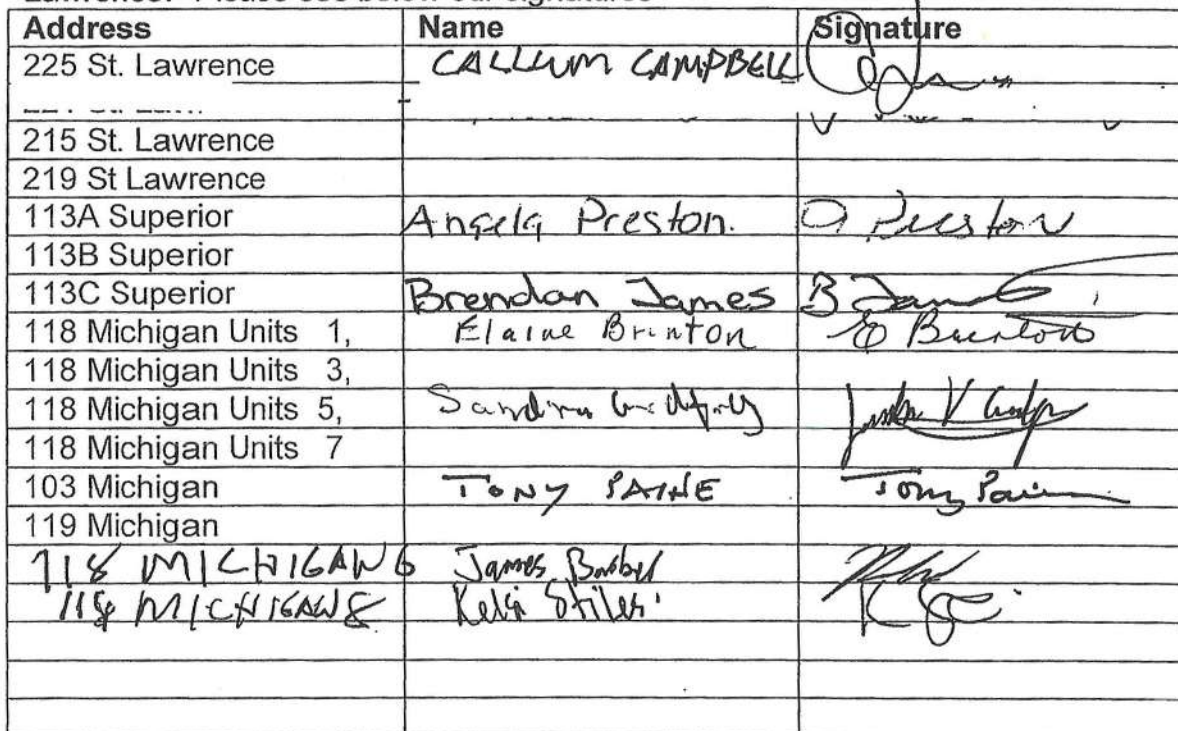 Address Name Signature
225 St. Lawrence CALLUM CAMPBELL
215 St. Lawrence
219 St Lawrence
113A Superior Angela Preston. A Preston
113B Superior
113C Superior Brendan James B James
118 Michigan Units 1, Elaine Brinton E Brinton
118 Michigan Units 3,
118 Michigan Units 5, Sandra
118 Michigan Units 7
103 Michigan TONY PAINE Tony Paine
119 Michigan
118 MICHIGAN 6 James Barber
118 MICHIGAN 8 Kelsi Stiles